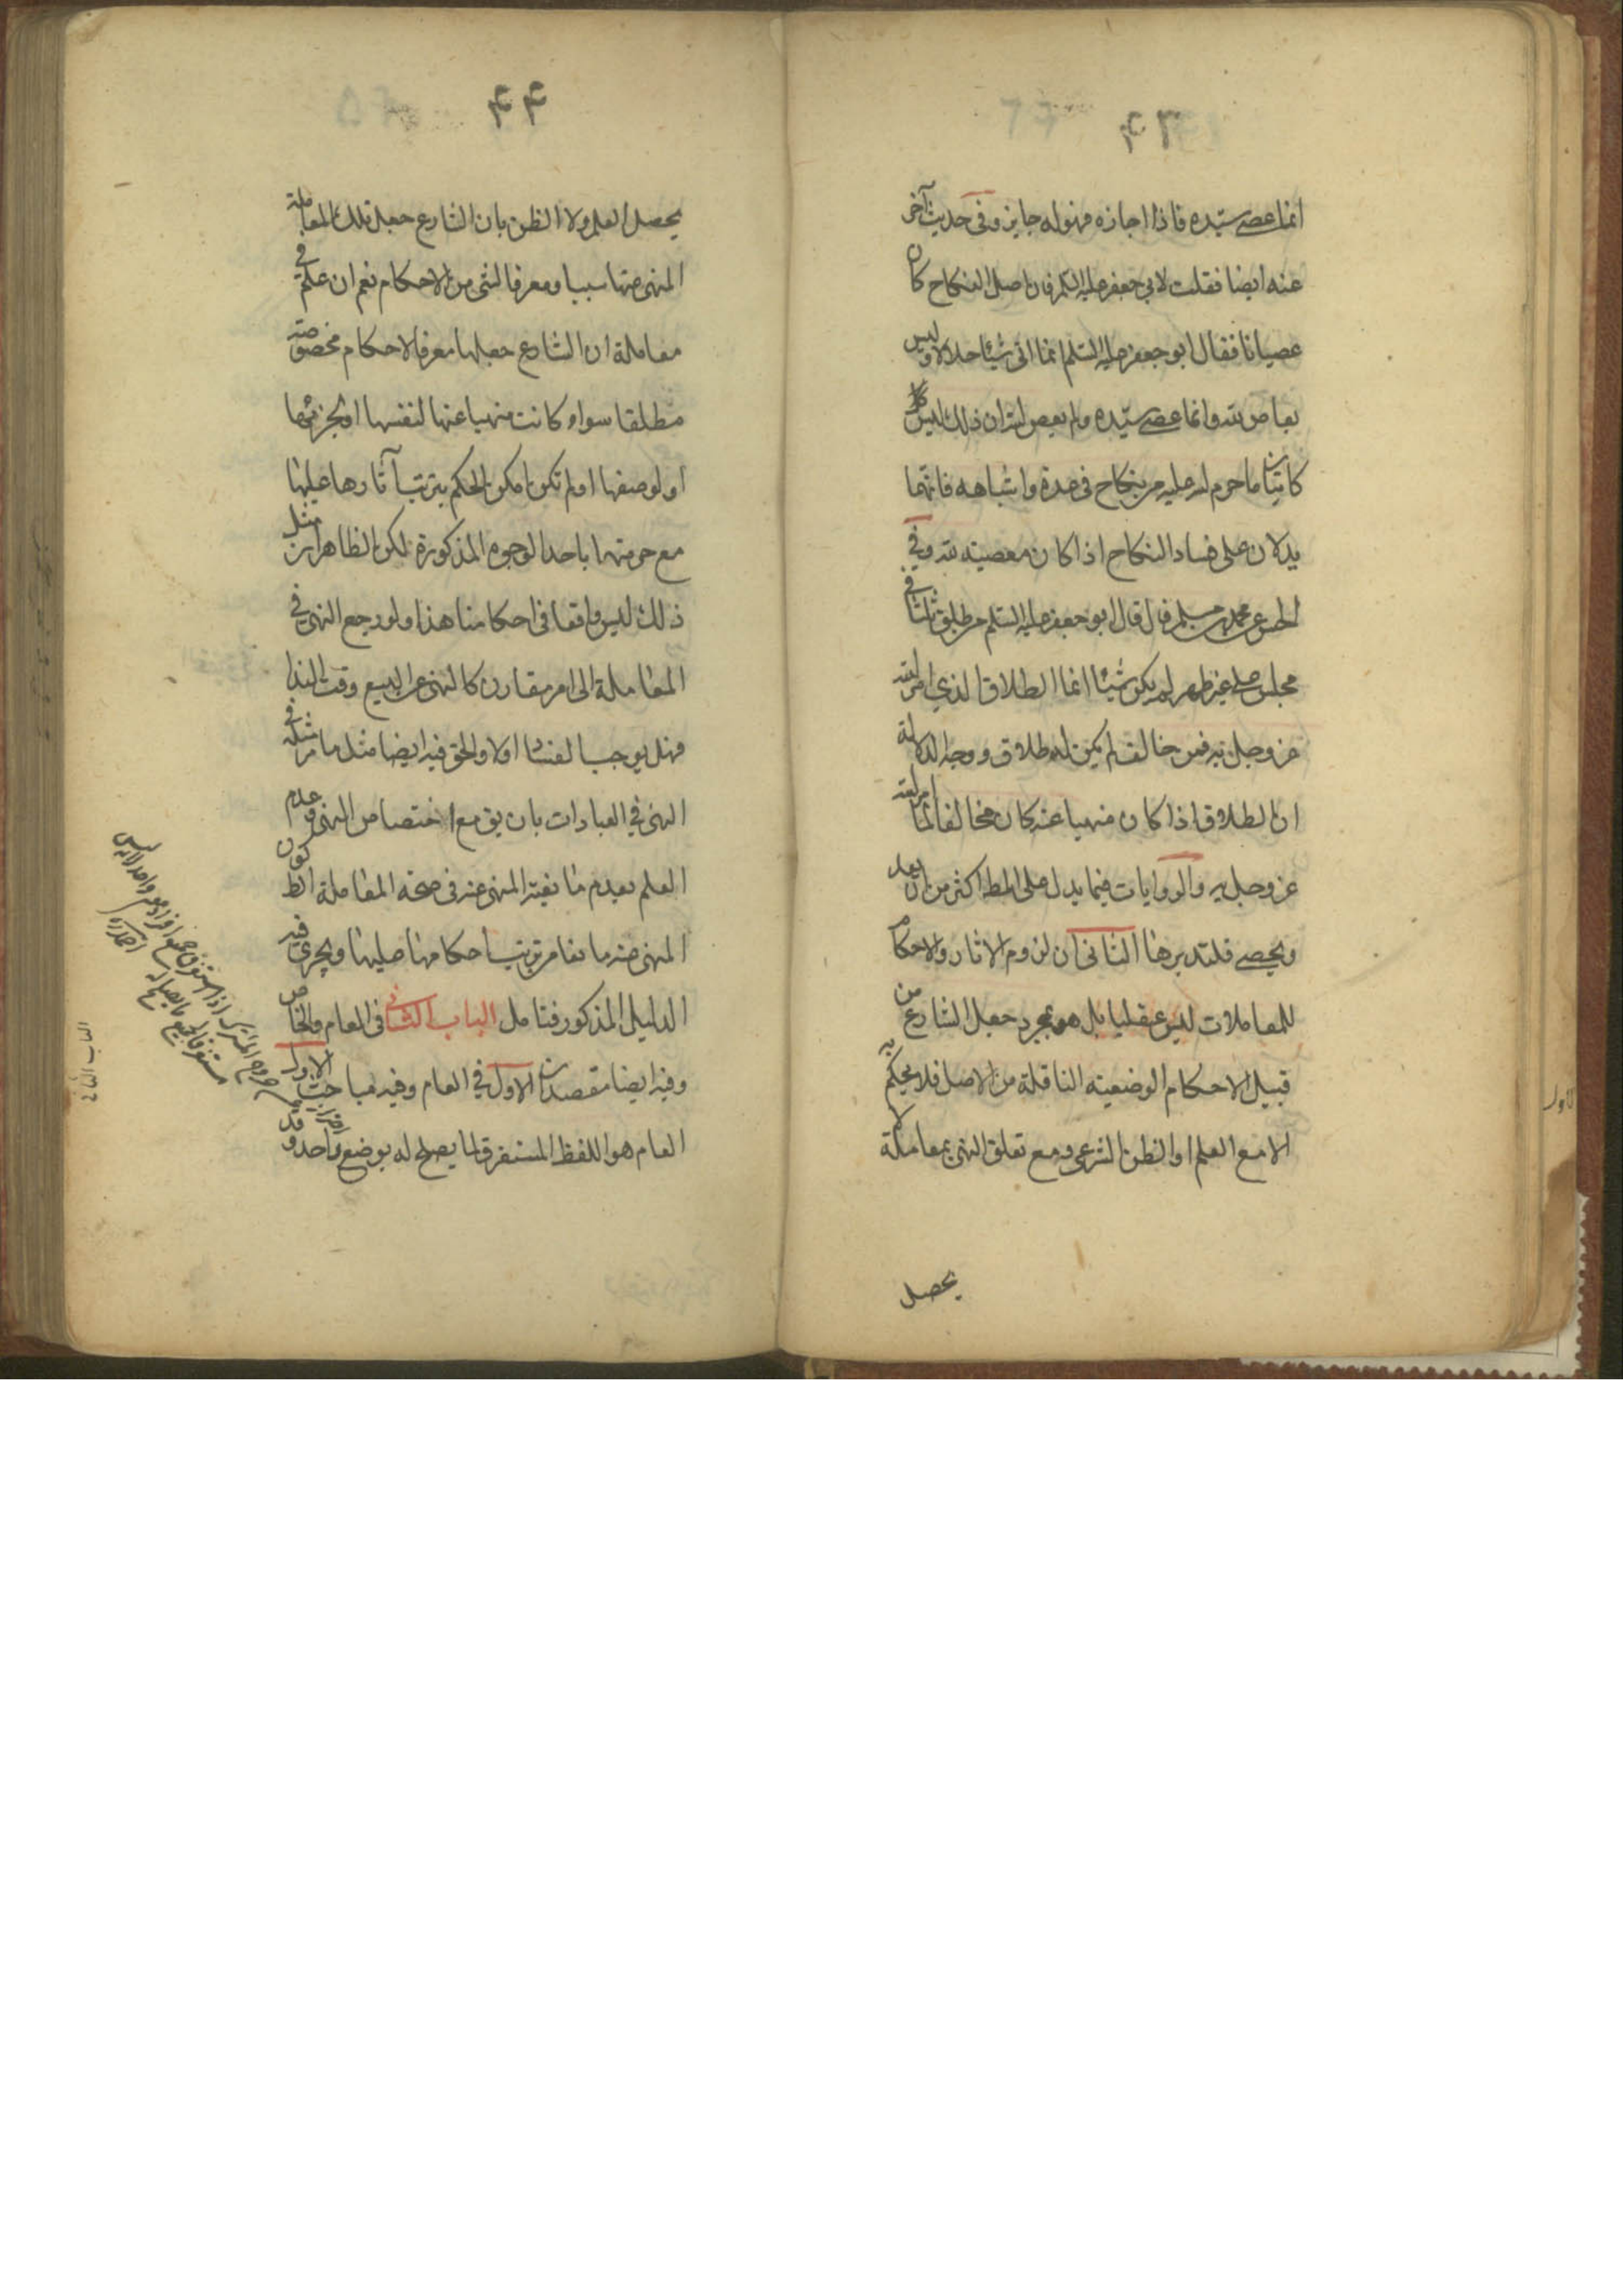 ٤٣
انما عصى سيّده فاذا اجازه فهو له جايز وفى حديث آخر
عنه ايضا فقلت لابي جعفر عليه السلم فان اصل النكاح كان
عصيانا فقال ابو جعفر عليه السّلم انما اتى شيئا حلالا وليس
بعاص لله وانما عصى سيّده ولم يعص الله ان ذلك ليس
كاتيان ما حرم الله عليه من نكاح فى عدة واشباهه فانهما
يدلان على فساد النكاح اذا كان معصية لله وفي
الحسن عن محمد بن مسلم قال قال ابو جعفر عليه السّلم من طلق ثلثا في
مجلس على غير طهر لم يكن شيئا انما الطلاق الذي امر الله
عز وجل به فمن خالف لم يكن له طلاق ووجه الدلالة
ان الطلاق اذا كان منهيا عنه كان مخالفا لما امر الله
عز وجل به والروايات فيما يدل على المط اكثر من ان يعد
ويحصى فلتدبرها الثانى ان لزوم الاثار والاحكام
للمعاملات ليس عقليا بل هو بمجرد جعل الشارع من
قبيل الاحكام الوضعية الناقلة من الاصل فلا يحكم به
الا مع العلم او الظن الشرعى ومع تعلق النهى بمعاملة لا
يحصل
٤٤
يحصل العلم ولا الظن بان الشارع جعل تلك المعاملة
المنهى عنها سببا ومعرفا لشى من الاحكام نعم ان علم في
معاملة ان الشارع جعلها معرفا لاحكام مخصوصة
مطلقا سواء كانت منهيا عنها لنفسها او لجزئها
او لوصفها او لم تكن امكن الحكم بترتب آثارها عليها
مع حرمتها باحد الوجوه المذكورة لكن الظاهر ان مثل
ذلك ليس واقعا فى احكامنا هذا ولو رجع النهى في
المعاملة الى امر مقارن كالنهى عن البيع وقت النداء
فهل يوجب الفساد اولا والحق فيه ايضا مثل ما مر مثله في
النهى في العبادات بان يق مع اختصاص النهى وعدم
العلم بعدم مانعية المنهى عنه فى صحة المعاملة الظ كون
المنهى عنه مانعا من ترتب احكامها عليها ويجرى فيه
الدليل المذكور فتامل الباب الثانى فى العام والخاص
وفيه ايضا مقصدان الاول في العام وفيه مباحث الاول
العام هو اللفظ المستغرق لما يصلح له بوضع واحد وقد
الباب الثانى